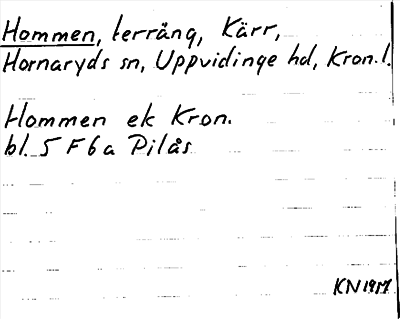 Hommen, terräng, Kärr,
Hornaryds sn, Uppvidinge hd, Kron.l.
Hommen ek Kron.
bl. 5 F 6 a Pilås
KN 1917